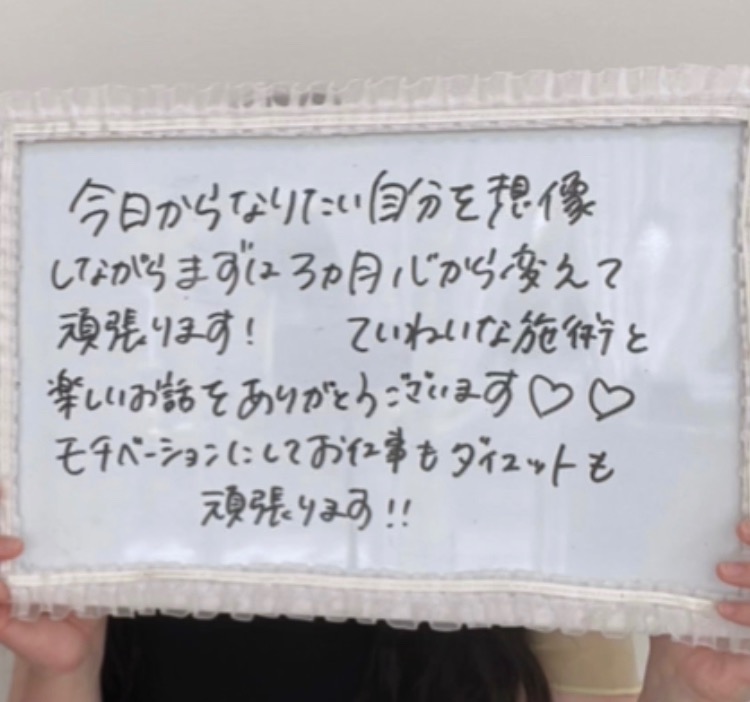 今日からなりたい自分を想像
しながらまずは3ヵ月心から変えて
頑張ります! ていねいな施術と
楽しいお話をありがとうございます♡♡
モチベーションにしてお仕事もダイエットも
頑張ります!!